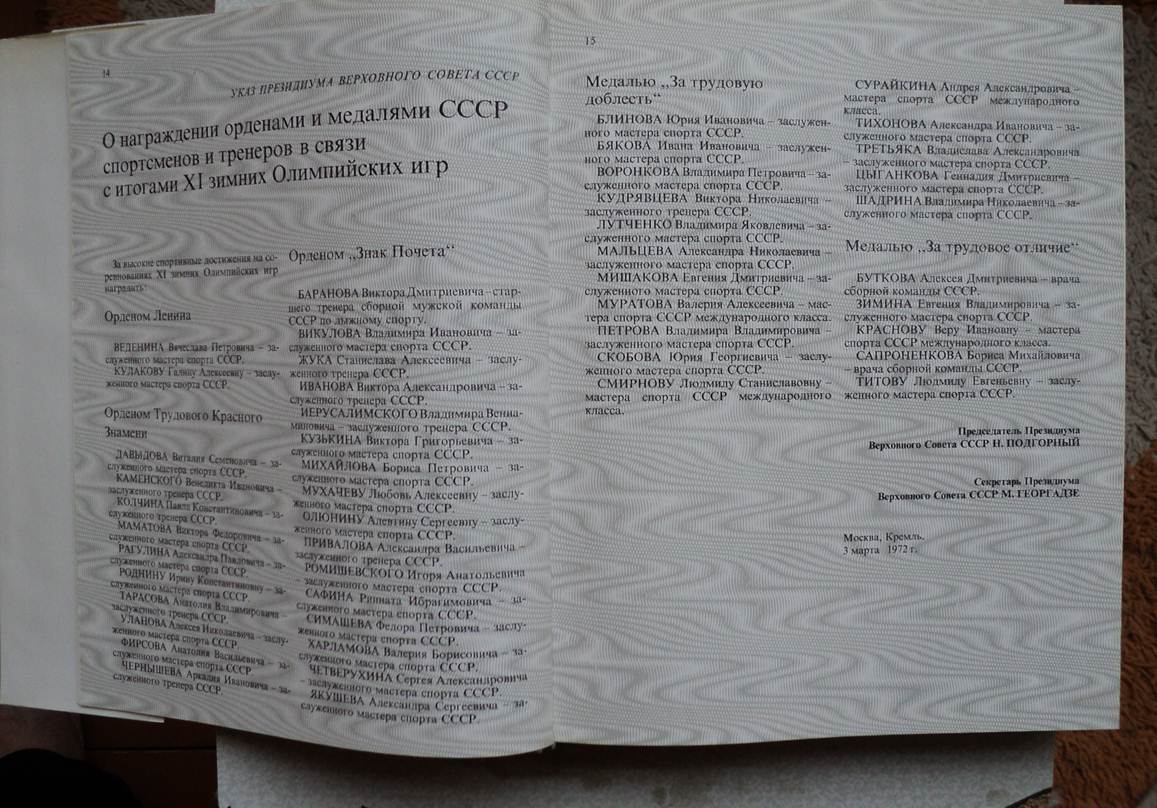 14
УКАЗ ПРЕЗИДИУМА ВЕРХОВНОГО СОВЕТА СССР
О награждении орденами и медалями СССР
спортсменов и тренеров в связи
с итогами XI зимних Олимпийских игр
За высокие спортивные достижения на со-
ревнованиях XI зимних Олимпийских игр
наградить:
Орденом Ленина
ВЕДЕНИНА Вячеслава Петровича – за-
служенного мастера спорта СССР.
КУЛАКОВУ Галину Алексеевну – заслу-
женного мастера спорта СССР.
Орденом Трудового Красного
Знамени
ДАВЫДОВА Виталия Семеновича – за-
служенного мастера спорта СССР.
КАМЕНСКОГО Венедикта Ивановича –
заслуженного тренера СССР.
КОЛЧИНА Павла Константиновича – за-
служенного тренера СССР.
МАМАТОВА Виктора Федоровича – за-
служенного мастера спорта СССР.
РАГУЛИНА Александра Павловича – за-
служенного мастера спорта СССР.
РОДНИНУ Ирину Константиновну – за-
служенного мастера спорта СССР.
ТАРАСОВА Анатолия Владимировича –
заслуженного тренера СССР.
УЛАНОВА Алексея Николаевича – заслу-
женного мастера спорта СССР.
ФИРСОВА Анатолия Васильевича – за-
служенного мастера спорта СССР.
ЧЕРНЫШЕВА Аркадия Ивановича – за-
служенного тренера СССР.
Орденом „Знак Почета“
БАРАНОВА Виктора Дмитриевича – стар-
шего тренера сборной мужской команды
СССР по лыжному спорту.
ВИКУЛОВА Владимира Ивановича – за-
служенного мастера спорта СССР.
ЖУКА Станислава Алексеевича – заслу-
женного тренера СССР.
ИВАНОВА Виктора Александровича – за-
служенного тренера СССР.
ИЕРУСАЛИМСКОГО Владимира Вениа-
миновича – заслуженного тренера СССР.
КУЗЬКИНА Виктора Григорьевича – за-
служенного мастера спорта СССР.
МИХАЙЛОВА Бориса Петровича – за-
служенного мастера спорта СССР.
МУХАЧЕВУ Любовь Алексеевну – заслу-
женного мастера спорта СССР.
ОЛЮНИНУ Алевтину Сергеевну – заслу-
женного мастера спорта СССР.
ПРИВАЛОВА Александра Васильевича –
заслуженного тренера СССР.
РОМИШЕВСКОГО Игоря Анатольевича
– заслуженного мастера спорта СССР.
САФИНА Ринната Ибрагимовича – за-
служенного мастера спорта СССР.
СИМАШЕВА Федора Петровича – заслу-
женного мастера спорта СССР.
ХАРЛАМОВА Валерия Борисовича – за-
служенного мастера спорта СССР.
ЧЕТВЕРУХИНА Сергея Александровича
– заслуженного мастера спорта СССР.
ЯКУШЕВА Александра Сергеевича – за-
служенного мастера спорта СССР.
15
Медалью „За трудовую
доблесть“
БЛИНОВА Юрия Ивановича – заслужен-
ного мастера спорта СССР.
БЯКОВА Ивана Ивановича – заслужен-
ного мастера спорта СССР.
ВОРОНКОВА Владимира Петровича – за-
служенного мастера спорта СССР.
КУДРЯВЦЕВА Виктора Николаевича –
заслуженного тренера СССР.
ЛУТЧЕНКО Владимира Яковлевича – за-
служенного мастера спорта СССР.
МАЛЬЦЕВА Александра Николаевича –
заслуженного мастера спорта СССР.
МИШАКОВА Евгения Дмитриевича – за-
служенного мастера спорта СССР.
МУРАТОВА Валерия Алексеевича – мас-
тера спорта СССР международного класса.
ПЕТРОВА Владимира Владимировича –
заслуженного мастера спорта СССР.
СКОБОВА Юрия Георгиевича – заслу-
женного мастера спорта СССР.
СМИРНОВУ Людмилу Станиславовну –
мастера спорта СССР международного
класса.
СУРАЙКИНА Андрея Александровича –
мастера спорта СССР международного
класса.
ТИХОНОВА Александра Ивановича – за-
служенного мастера спорта СССР.
ТРЕТЬЯКА Владислава Александровича
– заслуженного мастера спорта СССР.
ЦЫГАНКОВА Геннадия Дмитриевича –
заслуженного мастера спорта СССР.
ШАДРИНА Владимира Николаевича – за-
служенного мастера спорта СССР.
Медалью „За трудовое отличие“
БУТКОВА Алексея Дмитриевича – врача
сборной команды СССР.
ЗИМИНА Евгения Владимировича – за-
служенного мастера спорта СССР.
КРАСНОВУ Веру Ивановну – мастера
спорта СССР международного класса.
САПРОНЕНКОВА Бориса Михайловича
– врача сборной команды СССР.
ТИТОВУ Людмилу Евгеньевну – заслу-
женного мастера спорта СССР.
Председатель Президиума
Верховного Совета СССР Н. ПОДГОРНЫЙ
Секретарь Президиума
Верховного Совета СССР М. ГЕОРГАДЗЕ
Москва, Кремль.
3 марта 1972 г.